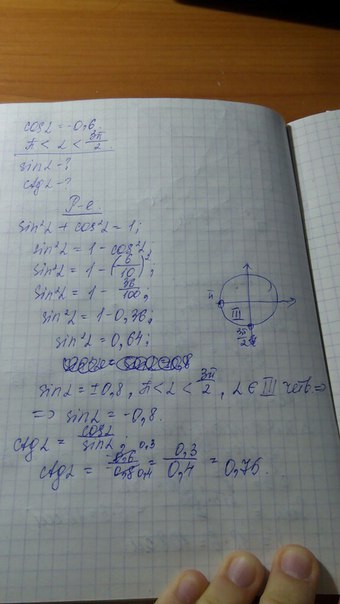 cosα = -0,6
π < α < 3π/2
sinα - ?
ctgα - ?
Р-е.
sin²α + cos²α = 1;
sin²α = 1 - cos²α;
sin²α = 1 - (6/10)²;
sin²α = 1 - 36/100;
sin²α = 1 - 0,36;
sin²α = 0,64;
sinα = ±0,8, π < α < 3π/2, α ∈ III четв. ⇒
⇒ sinα = -0,8.
ctgα = cosα/sinα;
ctgα = -0,6/-0,8 = 0,3/0,4 = 0,75.
π
III
3π/2